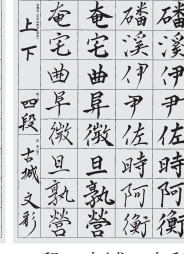 磻溪伊尹佐時阿衡
磻溪伊尹佐時阿衡
奄宅曲阜微旦孰營
奄宅曲阜微旦孰營
上下
四段
古城文彩